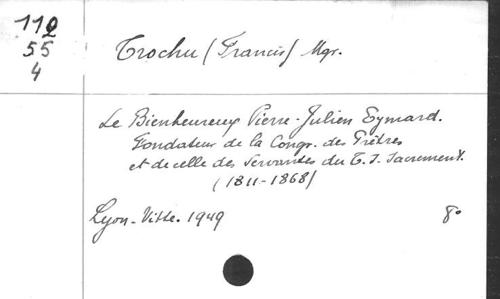 112
55
4
Trochu (Francis) Mgr.
Le Bienheureux Pierre-Julien Eymard.
Fondateur de la Congr. des Prêtres
et de celle des Servantes du T. S. Sacrement.
(1811-1868)
Lyon-Vitte. 1949
8°